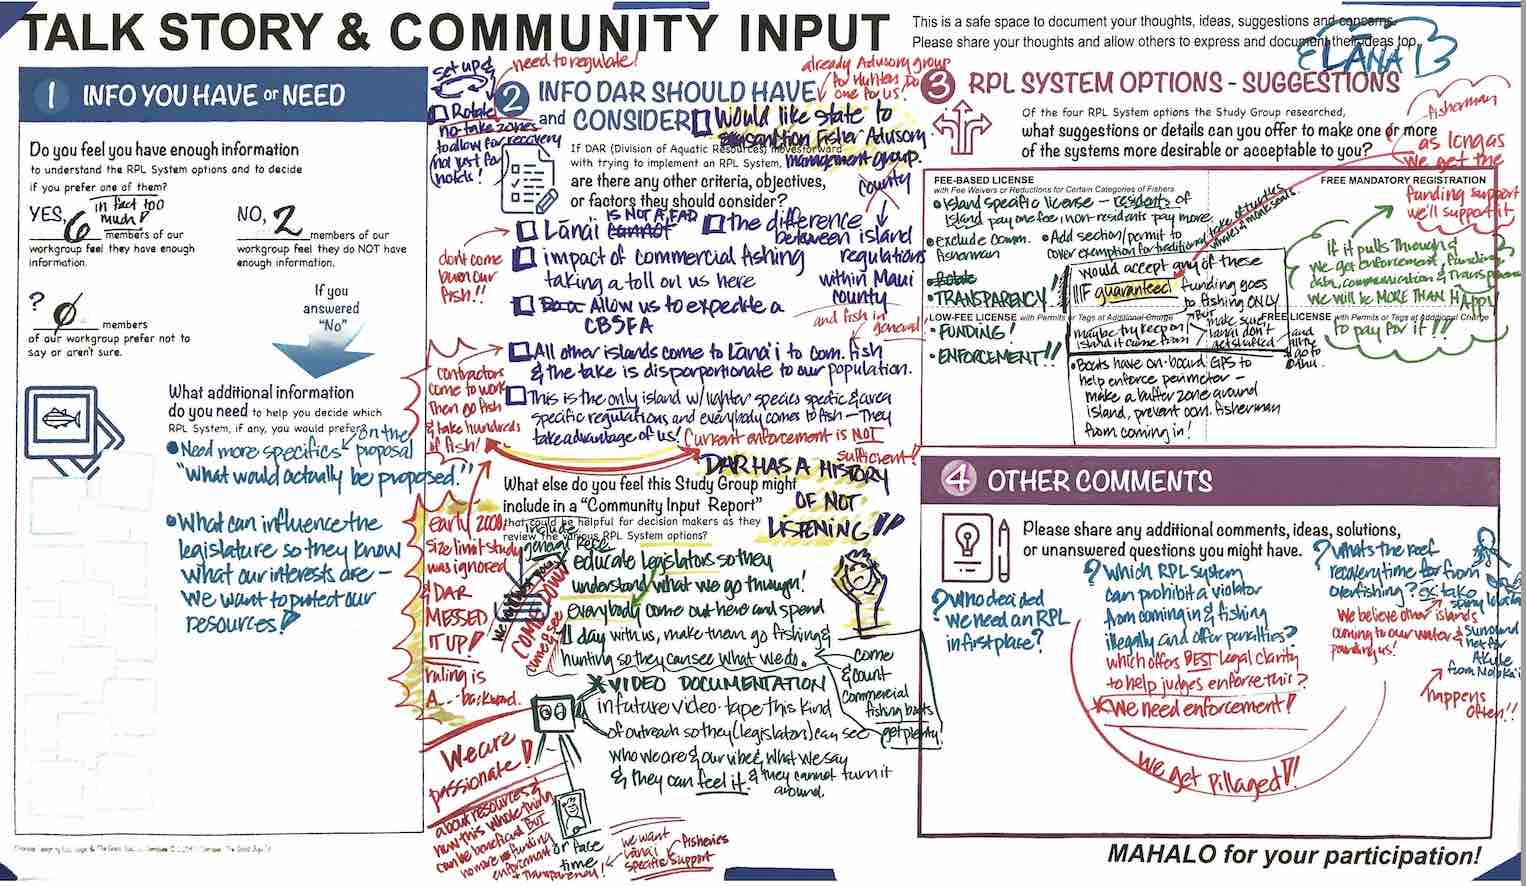 TALK STORY & COMMUNITY INPUT
This is a safe space to document your thoughts, ideas, suggestions and concerns.
Please share your thoughts and allow others to express and document their ideas too.
LĀNAʻI
1 INFO YOU HAVE or NEED
Do you feel you have enough information
to understand the RPL System options and to decide
if you prefer one of them?
YES, 6 members of our
in fact too
much!
workgroup feel they have enough
information.
NO, 2 members of our
workgroup feel they do NOT have
enough information.
? 0 members
of our workgroup prefer not to
say or aren't sure.
If you
answered
"No"
What additional information
do you need to help you decide which
RPL System, if any, you would prefer?
• Need more specifics on the proposal
"What would actually be proposed."
• What can influence the
legislature so they know
what our interests are -
We want to protect our
resources!
set up &
need to regulate!
Rotate
no-take zones
to allow for recovery
(not just for
holds!
2 INFO DAR SHOULD HAVE
and CONSIDER
already Advisory group
for Hunters. Do
one for us!
Would like state to
sanction Fisher Advisory
management group.
county
If DAR (Division of Aquatic Resources) moves forward
with trying to implement an RPL System,
are there any other criteria, objectives,
or factors they should consider?
Lānaʻi cannot
IS NOT A FAD
the difference
between island
regulations
within Maui
county
dont come
burn our
fish!!
impact of commercial fishing
taking a toll on us here
Allow us to expedite a
CBSFA
and fish in
general
All other islands come to Lānaʻi to com. fish
& the take is disportionate to our population.
contractors
come to work
Then go fish
& take hundreds
of fish!
This is the only island w/ lighter species specific & area
specific regulations and everybody comes to fish - They
take advantage of us!
Current enforcement is NOT
sufficient!
DAR HAS A HISTORY
OF NOT
LISTENING!!
What else do you feel this Study Group might
include in a "Community Input Report"
that could be helpful for decision makers as they
review the various RPL System options?
early 2000s
size limit study
was ignored
& DAR
MESSED
IT UP!
ruling is
A... backward.
include
COME DOWN
come & see
educate legislators so they
understand what we go through!
Everybody come out here and spend
1 day with us, make them go fishing &
hunting so they can see what we do.
come
& count
commercial
fishing boats
get plenty.
VIDEO DOCUMENTATION
in future video-tape this kind
of outreach so they (legislators) can see
who we are & our vibe, what we say
& they can feel it. & they cannot turn it
around.
We are
passionate!
about resources &
how this whole thing
can be beneficial BUT
no more w/o funding
enforcement
+ Transparency!
or face
time
we want
Lānaʻi
specific support
fisheries
3 RPL SYSTEM OPTIONS - SUGGESTIONS
Of the four RPL System options the Study Group researched,
what suggestions or details can you offer to make one or more
of the systems more desirable or acceptable to you?
fisherman
as long as
we get the
funding support
we'll support it
FEE-BASED LICENSE
with Fee Waivers or Reductions for Certain Categories of Fishers
• island specific license - residents of
island pay one fee, non-residents pay more.
• exclude comm.
fisherman
• Add section/permit to
cover exemption for traditional take of turtles
whales & monk seals.
• TRANSPARENCY!!
FREE MANDATORY REGISTRATION
would accept any of these
IIF guaranteed funding goes
to fishing ONLY
maybe try keep on
island it came from
BUT
make sure
lanai don't
get shafted
and
all the
$ go to
Oahu.
If it pulls Through &
we get enforcement, funding,
data, communication & Transparency
We will be MORE THAN HAPPY
to pay for it!!
LOW-FEE LICENSE with Permits or Tags at Additional Charge
• FUNDING!
• ENFORCEMENT!!
FREE LICENSE with Permits or Tags at Additional Charge
• Boats have on-board GPS to
help enforce perimeter -
make a buffer zone around
island, prevent com. fisherman
from coming in!
4 OTHER COMMENTS
Please share any additional comments, ideas, solutions,
or unanswered questions you might have.
? Who decided
we need an RPL
in first place?
? which RPL system
can prohibit a violator
from coming in & fishing
illegally and offer penalties?
which offers BEST legal clarity
to help judges enforce this?
* We need enforcement!
We get pillaged!!
? Whats the reef
recovery time for from
overfishing?
We believe other islands
coming to our water &
pounding us!
go take
spiny lobster
& surround
net for
Akule
from Molokaʻi
happens
often!!
MAHALO for your participation!